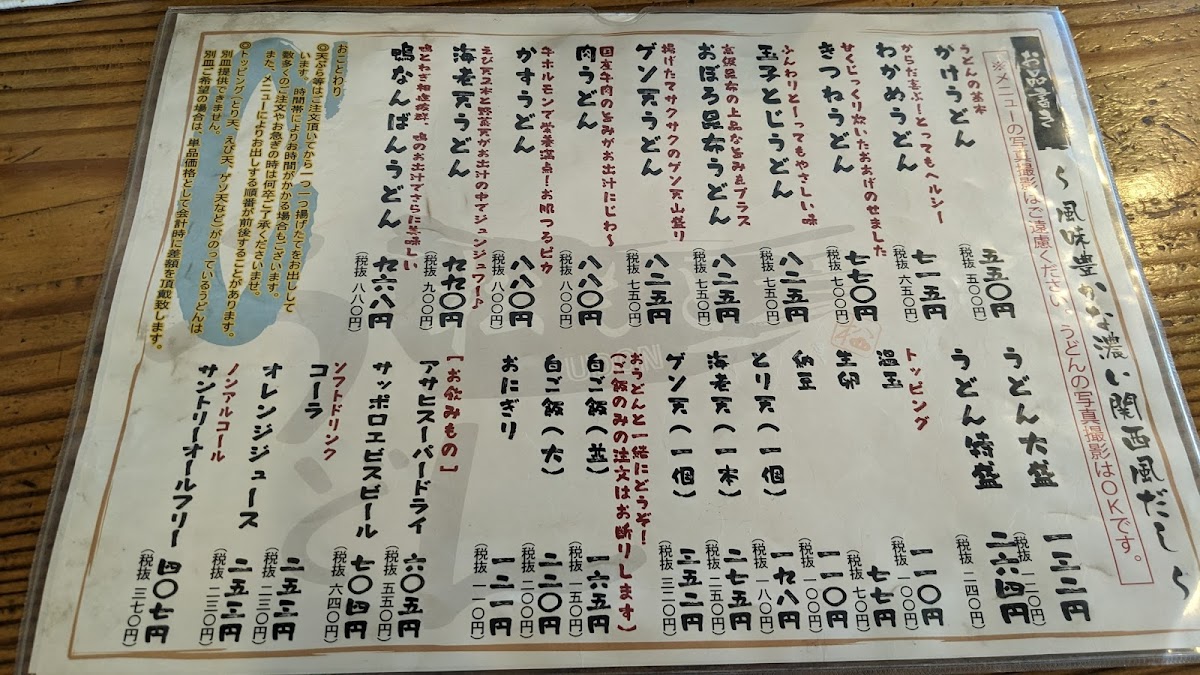 お品書き
～風味豊かな濃い関西風だし～
※メニューの写真撮影はご遠慮ください。うどんの写真撮影はOKです。
うどんの基本
かけうどん
五五〇円
(税抜 五〇〇円)
からだ喜ぶ～とってもヘルシー
わかめうどん
七一五円
(税抜 六五〇円)
せくじっくり炊いたおあげのせました
きつねうどん
七七〇円
(税抜 七〇〇円)
ふんわりと～ってもやさしい味
玉子とじうどん
八二五円
(税抜 七五〇円)
高級昆布の上品な旨みをプラス
おぼろ昆布うどん
八二五円
(税抜 七五〇円)
揚げたてサクサクのゲソ天山盛り
ゲソ天うどん
八二五円
(税抜 七五〇円)
国産牛肉の旨みがお出汁にじわ～
肉うどん
八八〇円
(税抜 八〇〇円)
牛ホルモンで栄養満点！お肌つるピカ
かすうどん
八八〇円
(税抜 八〇〇円)
えび天２本と野菜天がお出汁の中でジュンジュワー♪
海老天うどん
九九〇円
(税抜 九〇〇円)
鴨とねぎ相性抜群、鴨のお出汁でさらにお嬉しい
鴨なんばんうどん
九六八円
(税抜 八八〇円)
おことわり
◎天ぷら等はご注文頂いてから一つ一つ揚げたてをお出しして
います。時間帯によりお時間がかかる場合もございます。
数多くのご注文やお急ぎの時は何卒ご了承くださいませ。
また、メニューによりお出しする順番が前後することがあります。
◎トッピング(とり天、えび天、ゲソ天など)がのっているうどんは
別皿提供できません。
別皿ご希望の場合は、単品価格として会計時に差額を頂戴致します。
うどん大盛
一三二円
(税抜 一二〇円)
うどん特盛
二六四円
(税抜 二四〇円)
トッピング
温玉
一一〇円
(税抜 一〇〇円)
生卵
七七円
(税抜 七〇円)
納豆
一一〇円
(税抜 一〇〇円)
とり天(一個)
一九八円
(税抜 一八〇円)
海老天(一本)
二七五円
(税抜 二五〇円)
ゲソ天(一個)
三五二円
(税抜 三二〇円)
おうどんと一緒にどうぞ！
(ご飯のみの注文はお断りします)
白ご飯(並)
一六五円
(税抜 一五〇円)
白ご飯(大)
二二〇円
(税抜 二〇〇円)
おにぎり
一二一円
(税抜 一一〇円)
[お飲みもの]
アサヒスーパードライ
六〇五円
(税抜 五五〇円)
サッポロエビスビール
七〇四円
(税抜 六四〇円)
ソフトドリンク
コーラ
二五三円
(税抜 二三〇円)
オレンジジュース
二五三円
(税抜 二三〇円)
ノンアルコール
サントリーオールフリー
四〇七円
(税抜 三七〇円)
UDON